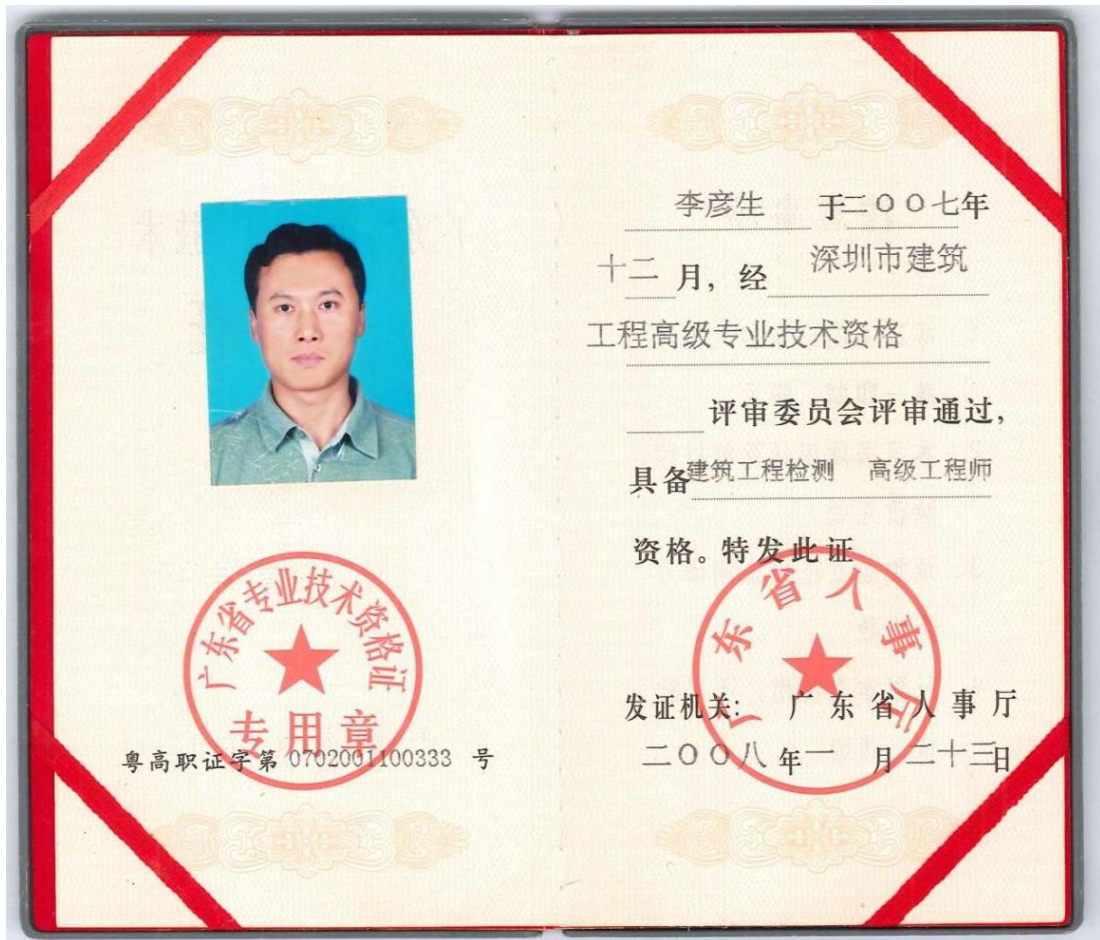 广东省专业技术资格证
专用章
粤高职证字第 0702001100333 号
李彦生 于二〇〇七年
十二月，经 深圳市建筑
工程高级专业技术资格
评审委员会评审通过，
具备建筑工程检测 高级工程师
资格。特发此证
广东省人事厅
发证机关：广东省人事厅
二〇〇八年一月二十三日